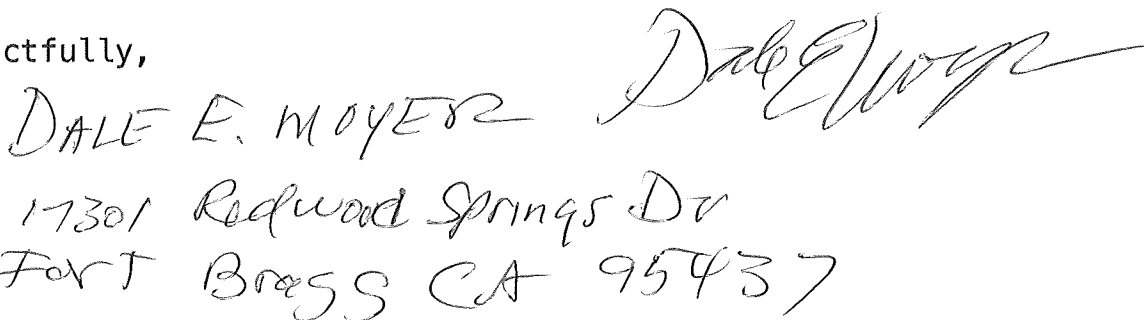 ctfully,
DALE E. MOYER Dale E Moyer
17301 Redwood Springs Dr
Fort Bragg CA 95437